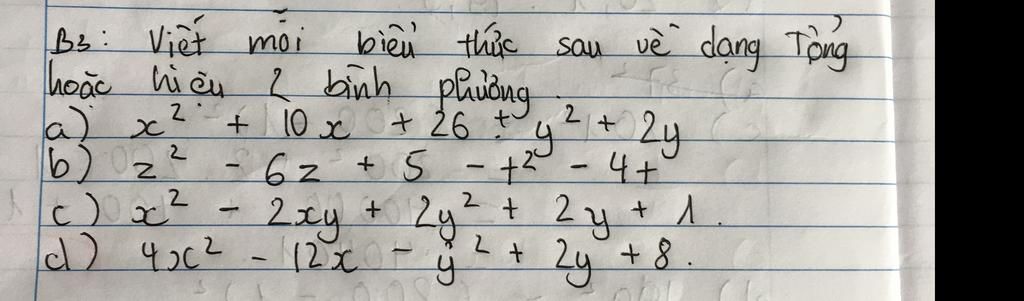 B3: Viết mỗi biểu thức sau về dạng Tổng
hoặc hiệu 2 bình phương.
a) x² + 10x + 26 + y² + 2y
b) z² - 6z + 5 - t² - 4t
c) x² - 2xy + 2y² + 2y + 1.
d) 4x² - 12x - y² + 2y + 8.